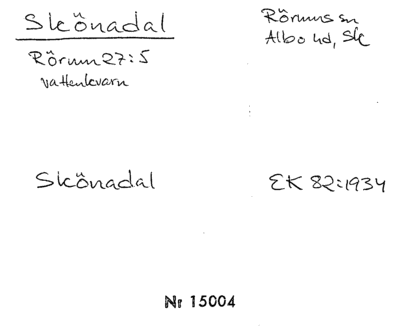 Skönadal
Rörum 27:5
vattenkvarn
Rörums sn
Albo hd, Sk
Skönadal
EK 82:1934
Nr 15004